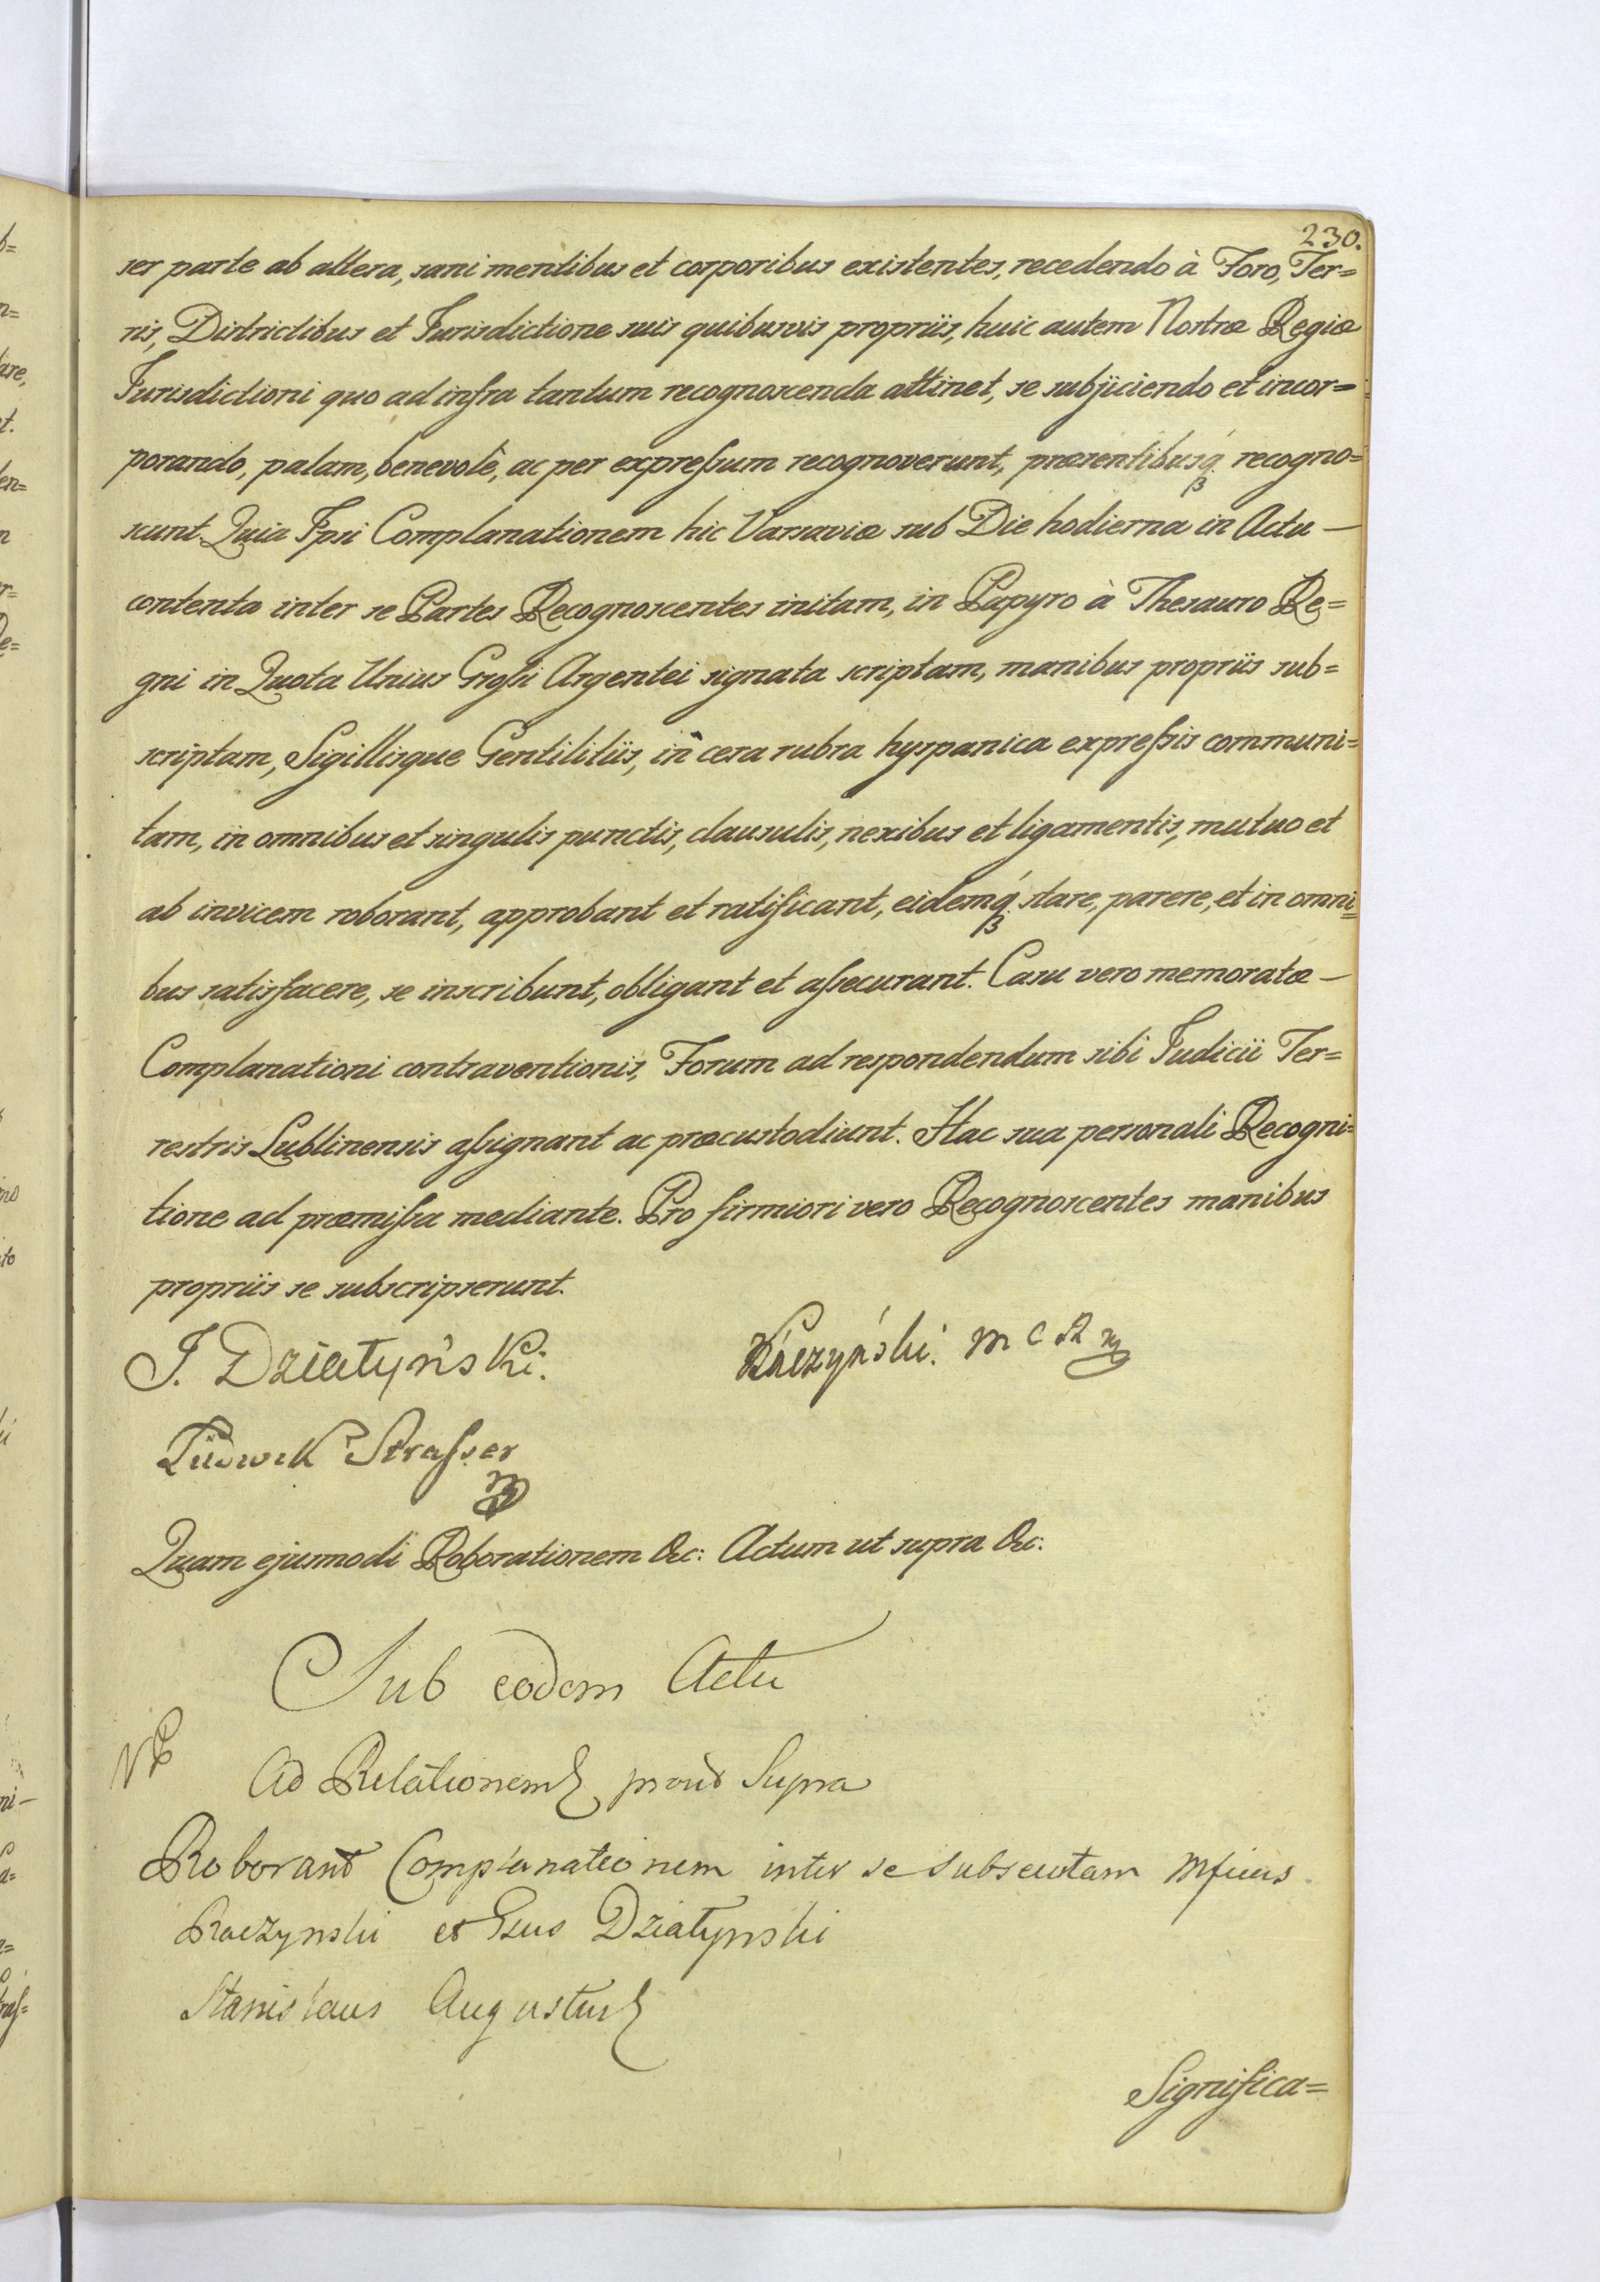 230.
ser parte ab altera, sani mentibus et corporibus existentes, recedendo à Foro, Ter=
ris, Districtibus et Jurisdictione suis quibusvis propriis, huic autem Nostræ Regiæ
Jurisdictioni quo ad infra tantum recognoscenda attinet, se subjiciendo et incor=
porando, palam, benevolè, ac per expreſsum recognoverunt, præsentibusq́ recogno=
scunt. Quia Ipsi Complanationem hic Varsaviæ sub Die hodierna in Actu —
contento inter se Partes Recognoscentes initam, in Papyro à Thesauro Re=
gni in Quota Unius Groſsi Argentei signata scriptam, manibus propriis sub=
scriptam, Sigillisque Gentilitiis, in cera rubra hyspanica expreſsis communi=
tam, in omnibus et singulis punctis, clausulis, nexibus et ligamentis, mutuo et
ab invicem roborant, approbant et ratificant, eidemq́ stare, parere, et in omni=
bus satisfacere, se inscribunt, obligant et aſsecurant. Casu vero memoratæ —
Complanationi contraventionis, Forum ad respondendum sibi Judicii Ter=
restris Lublinensis aſsignant ac præcustodiunt. Hac sua personali Recogni=
tione ad præmiſsa mediante. Pro firmiori vero Recognoscentes manibus
propriis se subscripserunt.
J. Dziatyński.
Raczyński. m c R
Ludwik Straſser
Quam ejusmodi Roborationem &c: Actum ut supra &c:
Sub eodem Actu
Ad Relationem prout Supra
Roborant Complanationem inter se subsecutam Mficus
Raczynski et Gsus Dziatynski
Stanislaus Augustus
Significa=